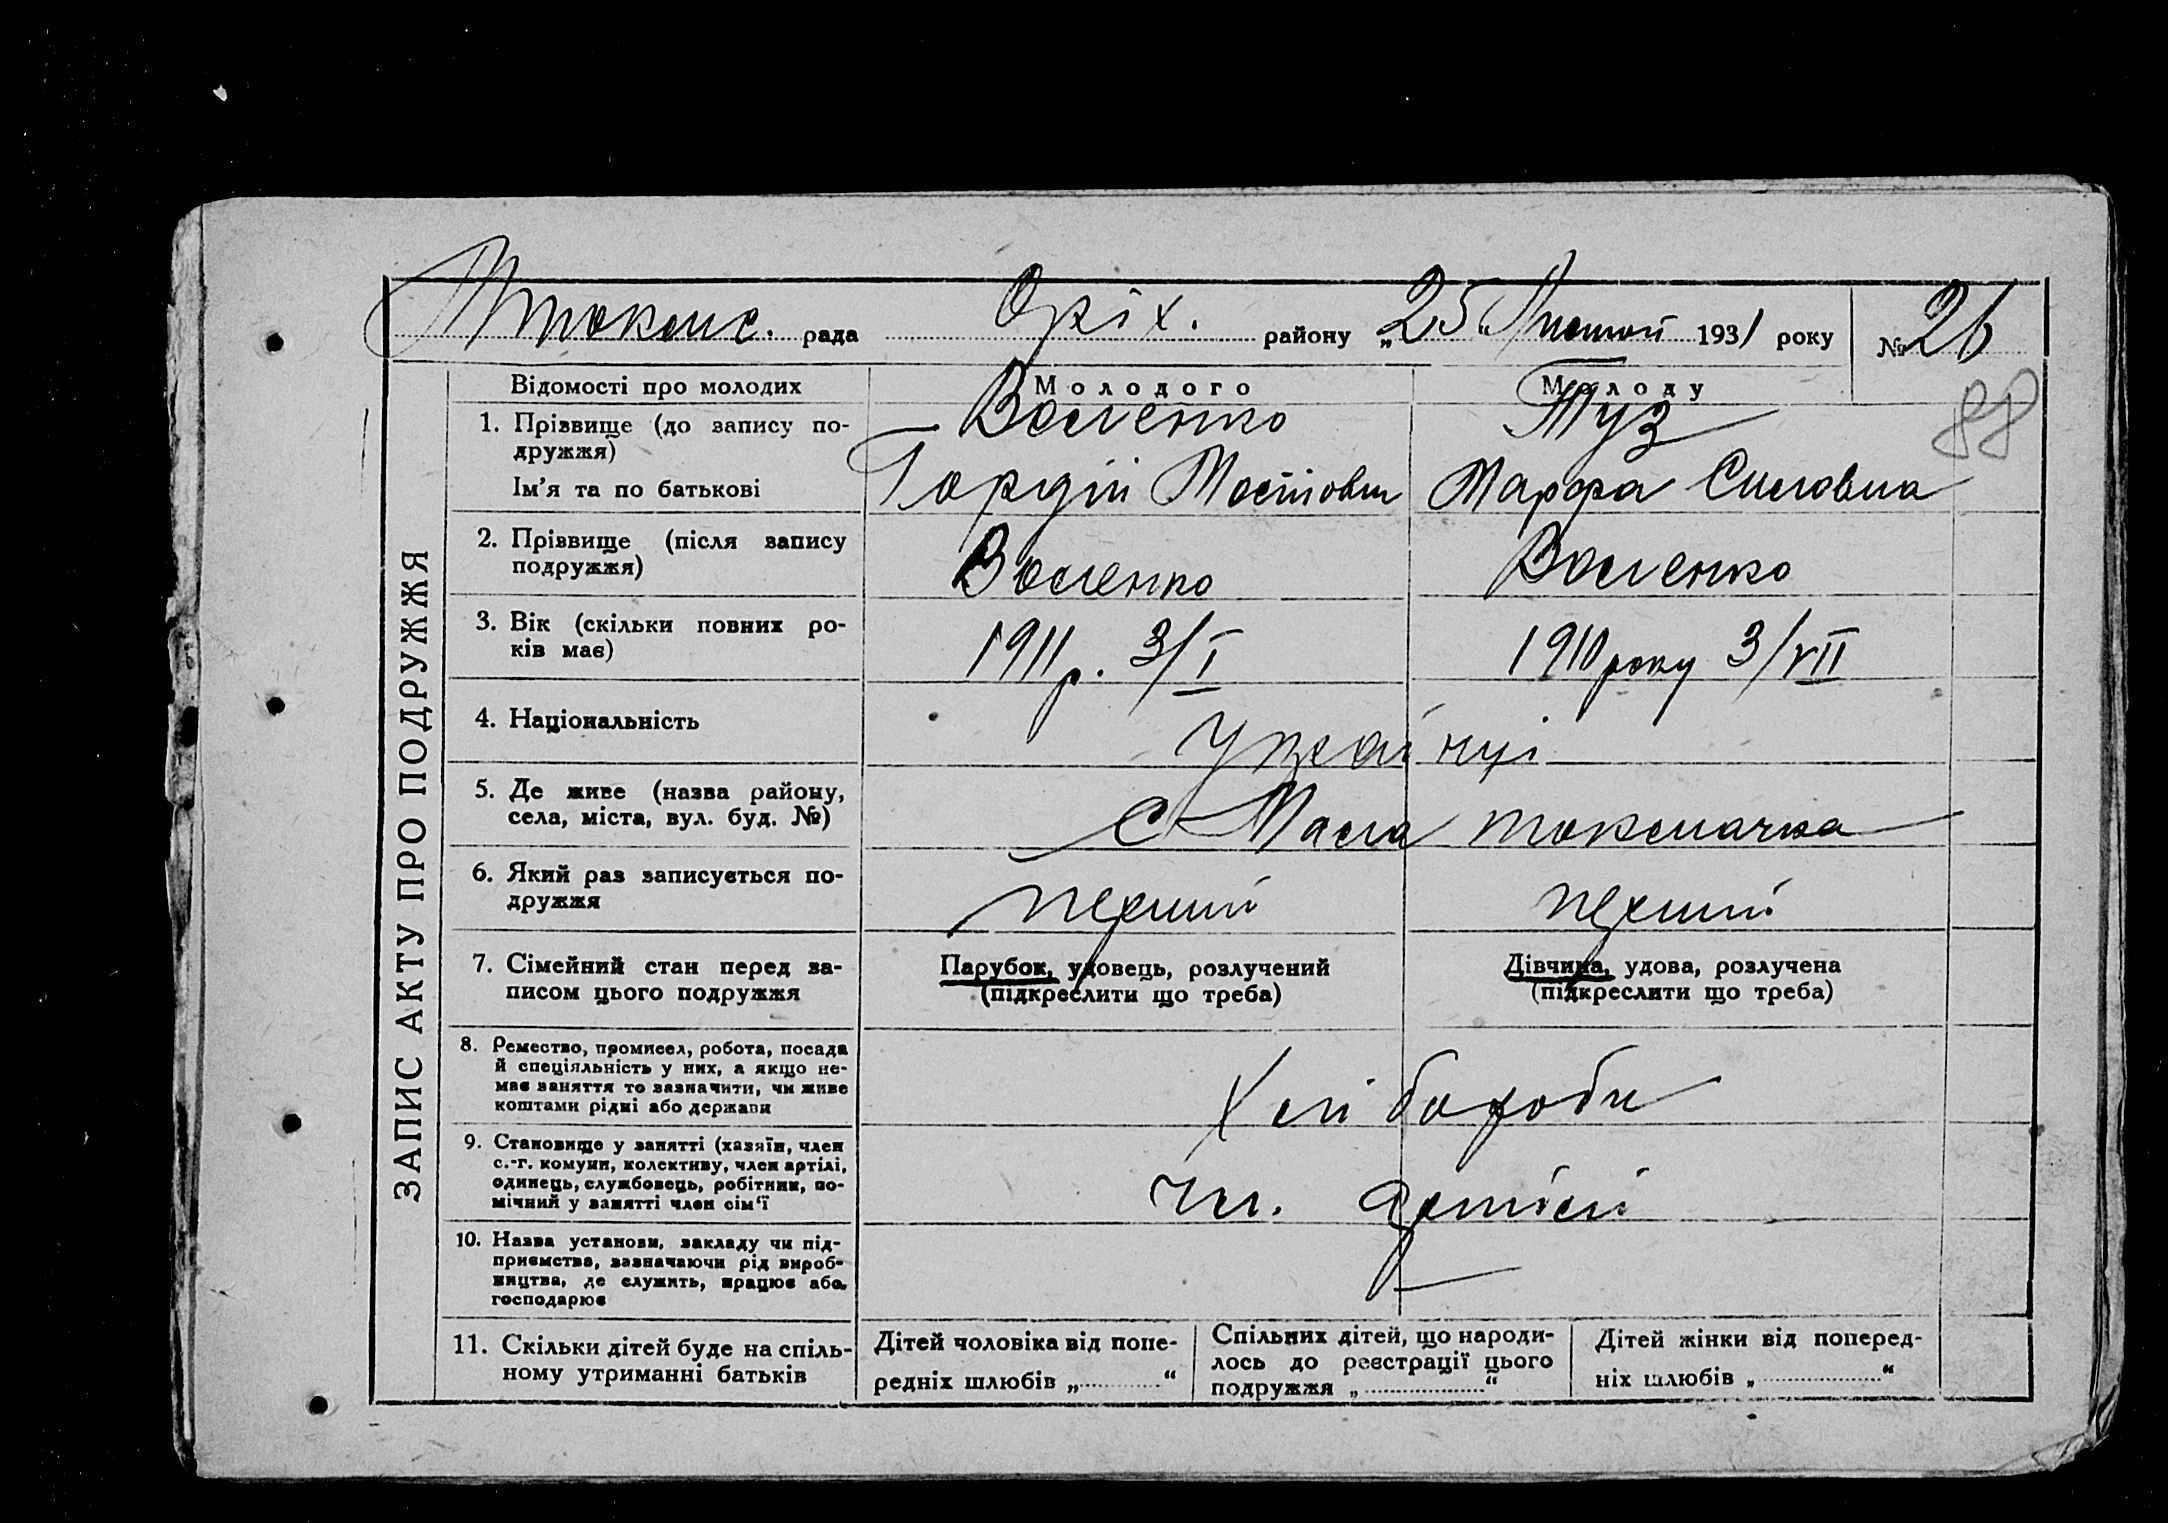 М Токмс. рада Оріх. району „25“ Лютий 1931 року № 26
88
ЗАПИС АКТУ ПРО ПОДРУЖЖЯ
Відомості про молодих Молодого Молоду
1. Прізвище (до запису по-
дружжя)
Василенко Туз
Ім'я та по батькові Гордій Мойсйович Марфа Силовна
2. Прізвище (після запису
подружжя)
Василенко Василенко
3. Вік (скільки повних ро-
ків має)
1911 р. 3/I 1910 року 3/VII
4. Національність Украінці
5. Де живе (назва району,
села, міста, вул. буд. №)
с Мала токмачка
6. Який раз записується по-
дружжя
перший перший
7. Сімейний стан перед за-
писом цього подружжя
Парубок, удовець, розлучений
(підкреслити що треба)
Дівчина, удова, розлучена
(підкреслити що треба)
8. Ремество, промисел, робота, посада
й спеціяльність у них, а якщо не-
має заняття то зазначити, чи живе
коштами рідні або держави
Хліб ороби
9. Становище у занятті (хазяїн, член
с.-г. комуни, колективу, член артілі,
одинець, службовець, робітник, по-
мічний у занятті член сім'ї
чл. артілі
10. Назва установи, закладу чи під-
приємства, зазначаючи рід вироб-
ництва, де служить, працює або
господарює
11. Скільки дітей буде на спіль-
ному утриманні батьків
Дітей чоловіка від попе-
редніх шлюбів „ “
Спільних дітей, що народи-
лось до реєстрації цього
подружжя „ “
Дітей жінки від поперед-
ніх шлюбів „ “